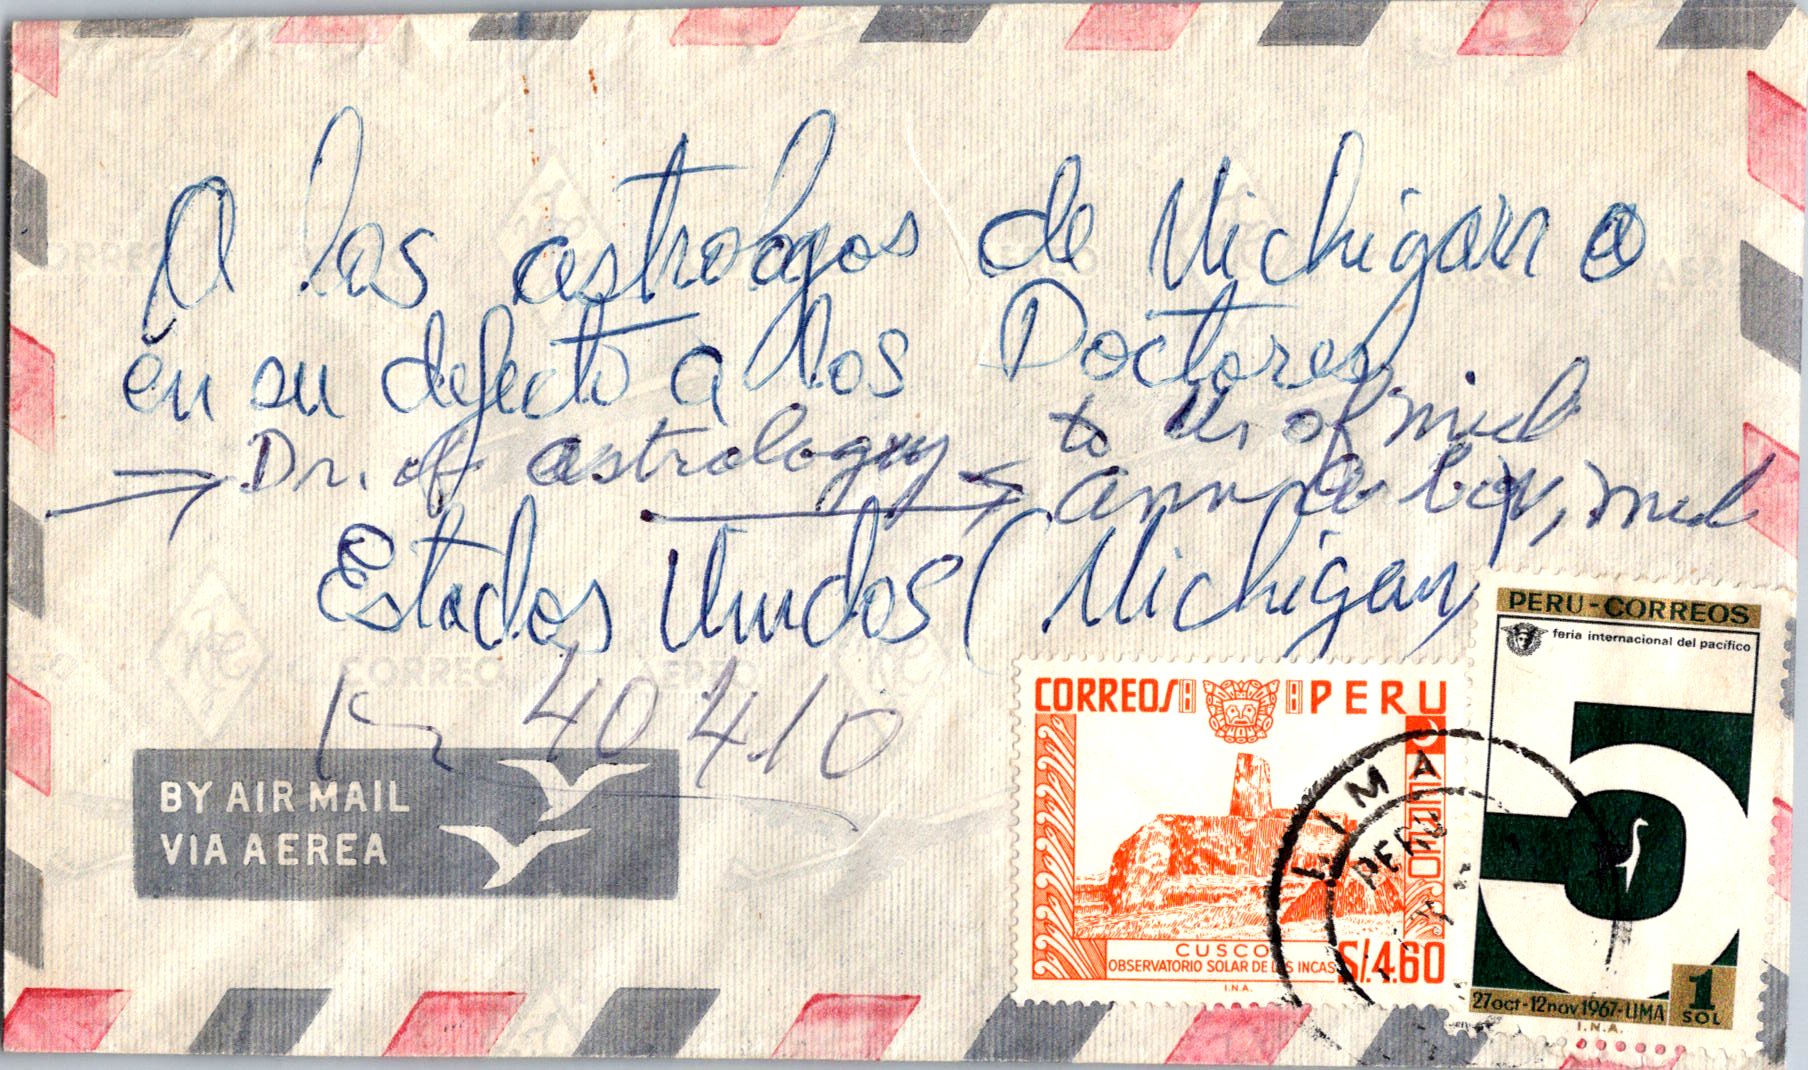 A los astrologos de Michigan o
en su defecto a los Doctores
to U. of Mich
→ Dr. of astrology
ann arbor, Mich
Estados Unidos (Michigan)
40410
BY AIR MAIL
VIA AEREA
CORREO AEREO
CORREOS PERU
AEREO
CUSCO
OBSERVATORIO SOLAR DE LOS INCAS
S/.4.60
I.N.A.
PERU-CORREOS
feria internacional del pacífico
5
1
SOL
27oct-12nov1967-LIMA
I.N.A.
LIMA
PERU